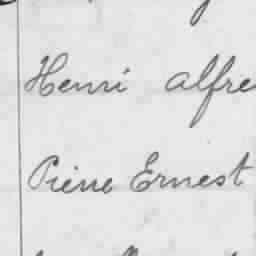 Henri Alfre
Pierre Ernest